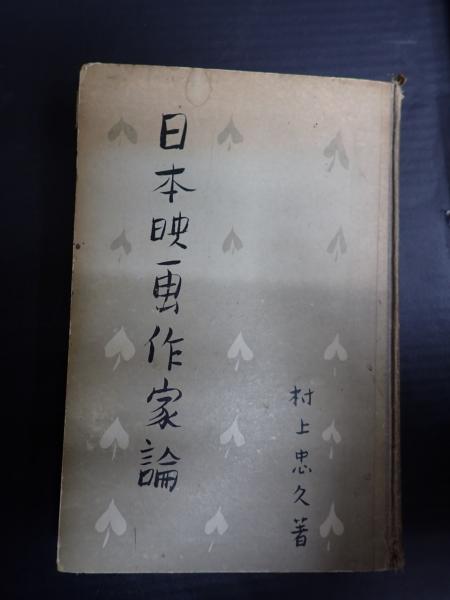 日本映画作家論
村上忠久著